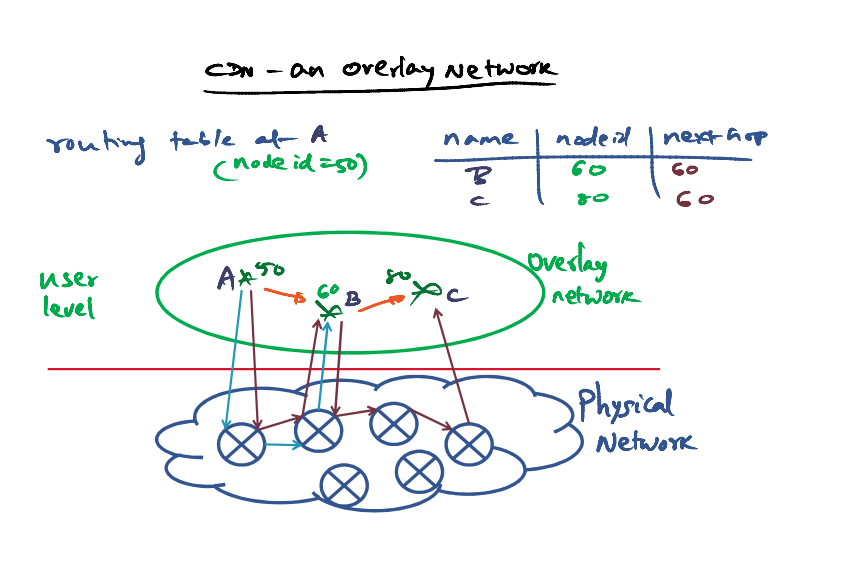 CDN - an overlay Network
routing table at A
(node id = 50)
name nodeid next hop
B 60 60
C 80 60
user
level
A 50
60 B
80 C
overlay
network
Physical
Network